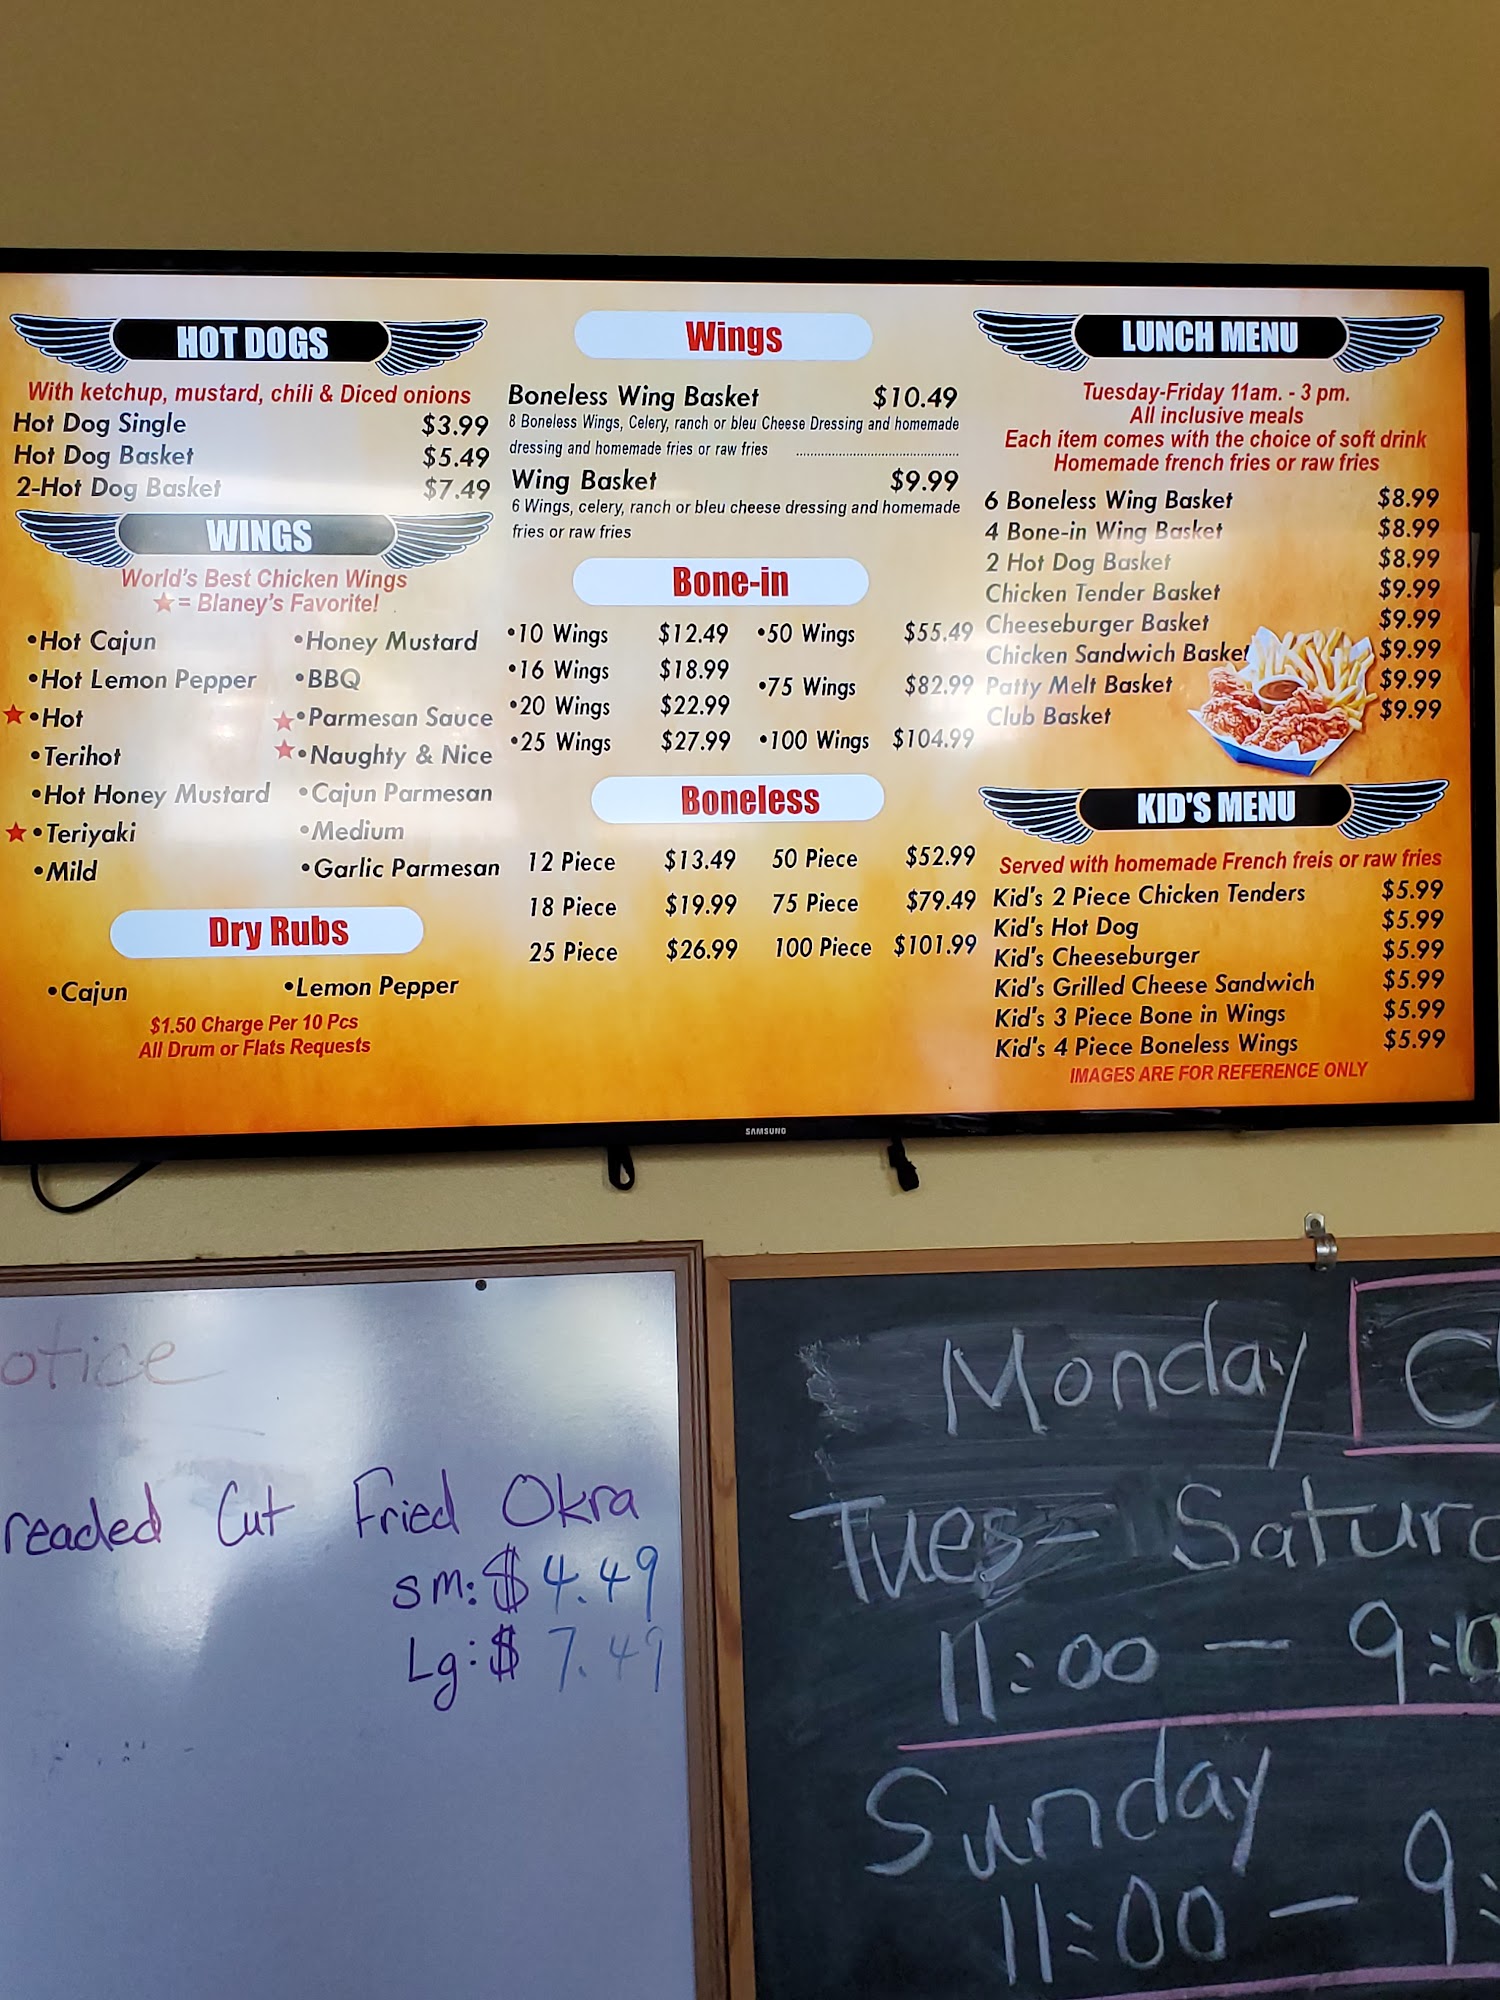 HOT DOGS
With ketchup, mustard, chili & Diced onions
Hot Dog Single $3.99
Hot Dog Basket $5.49
2-Hot Dog Basket $7.49
WINGS
World's Best Chicken Wings
★= Blaney's Favorite!
•Hot Cajun •Honey Mustard
•Hot Lemon Pepper •BBQ
★•Hot ★•Parmesan Sauce
•Terihot ★•Naughty & Nice
•Hot Honey Mustard •Cajun Parmesan
★•Teriyaki •Medium
•Mild •Garlic Parmesan
Dry Rubs
•Cajun •Lemon Pepper
$1.50 Charge Per 10 Pcs
All Drum or Flats Requests
Wings
Boneless Wing Basket $10.49
8 Boneless Wings, Celery, ranch or bleu Cheese Dressing and homemade
dressing and homemade fries or raw fries
Wing Basket $9.99
6 Wings, celery, ranch or bleu cheese dressing and homemade
fries or raw fries
Bone-in
•10 Wings $12.49 •50 Wings $55.49
•16 Wings $18.99
•75 Wings $82.99
•20 Wings $22.99
•25 Wings $27.99 •100 Wings $104.99
Boneless
12 Piece $13.49 50 Piece $52.99
18 Piece $19.99 75 Piece $79.49
25 Piece $26.99 100 Piece $101.99
LUNCH MENU
Tuesday-Friday 11am. - 3 pm.
All inclusive meals
Each item comes with the choice of soft drink
Homemade french fries or raw fries
6 Boneless Wing Basket $8.99
4 Bone-in Wing Basket $8.99
2 Hot Dog Basket $8.99
Chicken Tender Basket $9.99
Cheeseburger Basket $9.99
Chicken Sandwich Basket $9.99
Patty Melt Basket $9.99
Club Basket $9.99
KID'S MENU
Served with homemade French freis or raw fries
Kid's 2 Piece Chicken Tenders $5.99
Kid's Hot Dog $5.99
Kid's Cheeseburger $5.99
Kid's Grilled Cheese Sandwich $5.99
Kid's 3 Piece Bone in Wings $5.99
Kid's 4 Piece Boneless Wings $5.99
IMAGES ARE FOR REFERENCE ONLY
SAMSUNG
otice
readed Cut Fried Okra
sm: $4.49
Lg: $7.49
Monday C
Tues- Satur
11:00 - 9:0
Sunday
11:00 - 9: